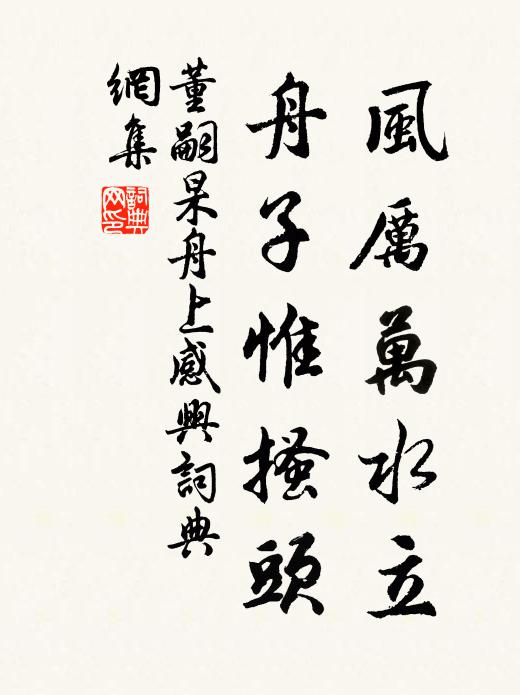 風厲萬水立
舟子惟搔頭
董嗣杲舟上感興詞典
網集
詞典
网印